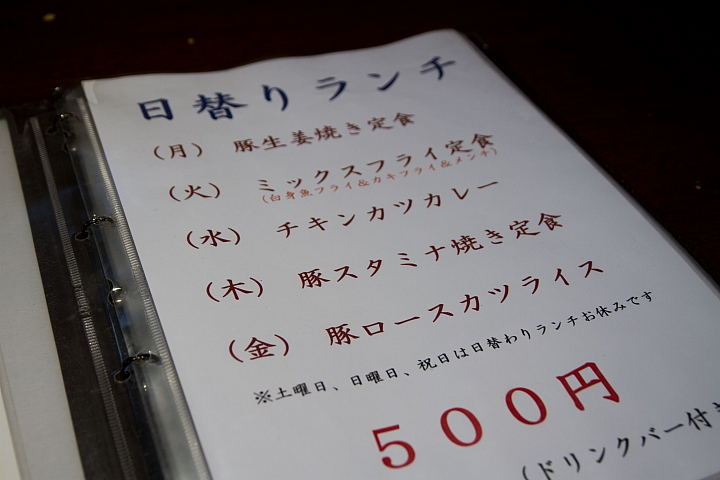 日替りランチ
(月) 豚生姜焼き定食
(火) ミックスフライ定食
(白身魚フライ&カキフライ&メンチ)
(水) チキンカツカレー
(木) 豚スタミナ焼き定食
(金) 豚ロースカツライス
※土曜日、日曜日、祝日は日替わりランチお休みです
500円
(ドリンクバー付き